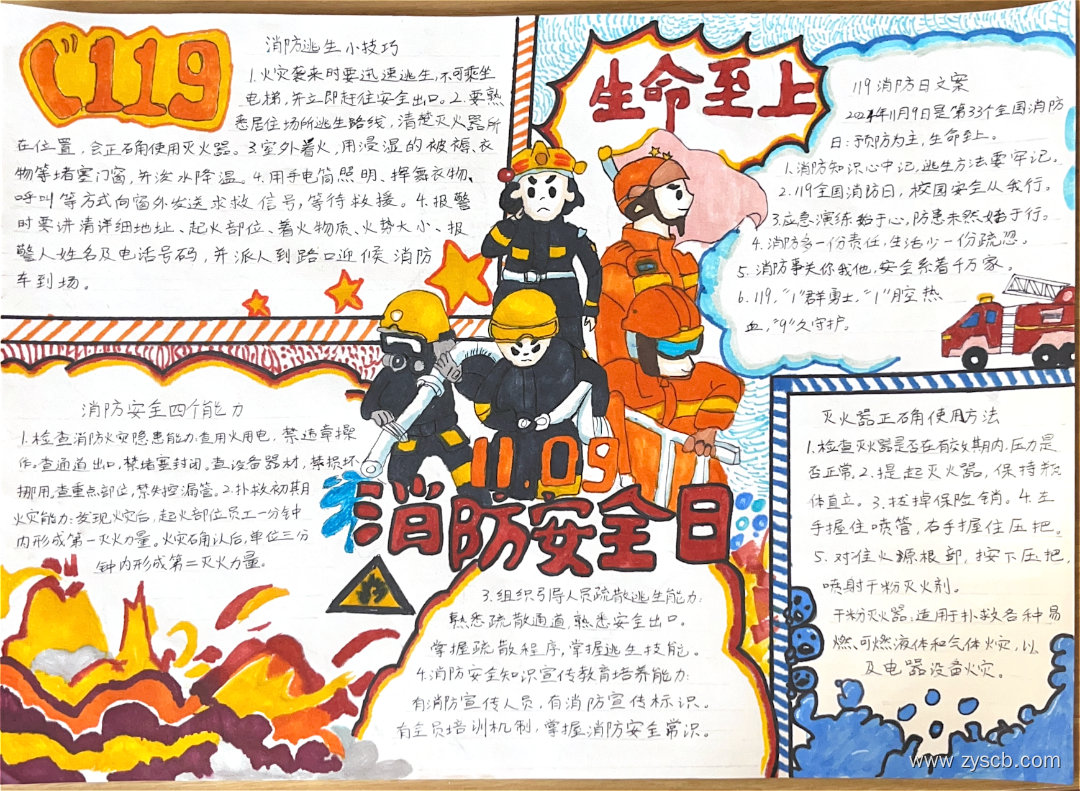 119
消防逃生小技巧
1.火灾袭来时要迅速逃生,不可乘坐
电梯,并立即赶往安全出口。2.要熟
悉居住场所逃生路线,清楚灭火器所
在位置,会正确使用灭火器。3.室外着火,用浸湿的被褥、衣
物等堵塞门窗,并泼水降温。4.用手电筒照明、挥舞衣物、
呼叫等方式向窗外发送求救信号,等待救援。4.报警
时要讲清详细地址、起火部位、着火物质、火势大小、报
警人姓名及电话号码,并派人到路口迎候消防
车到场。
生命至上
119消防日文案
2024年11月9日是第33个全国消防
日:预防为主,生命至上。
1.消防知识心中记,逃生方法要牢记。
2.119全国消防日,校园安全从我行。
3.应急演练始于心,防患未然始于行。
4.消防多一份责任,生活少一份疏忽。
5.消防事关你我他,安全系着千万家。
6.119,“1”群勇士,“1”腔热
血,“9”久守护。
消防安全四个能力
1.检查消防火灾隐患能力:查用火用电,禁违章操
作。查通道出口,禁堵塞封闭。查设备器材,禁损坏
挪用。查重点部位,禁失控漏管。2.扑救初期
火灾能力:发现火灾后,起火部位员工一分钟
内形成第一灭火力量。火灾确认后,单位三分
钟内形成第二灭火力量。
11.09
消防安全日
3.组织引导人员疏散逃生能力:
熟悉疏散通道,熟悉安全出口。
掌握疏散程序,掌握逃生技能。
4.消防安全知识宣传教育培养能力:
有消防宣传人员,有消防宣传标识。
有全员培训机制,掌握消防安全常识。
灭火器正确使用方法
1.检查灭火器是否在有效期内,压力是
否正常。2.提起灭火器,保持瓶
体直立。3.拔掉保险销。4.左
手握住喷管,右手握住压把。
5.对住火源根部,按下压把,
喷射干粉灭火剂。
干粉灭火器,适用于扑救各种易
燃、可燃液体和气体火灾,以
及电器设备火灾。
www.zyscb.com